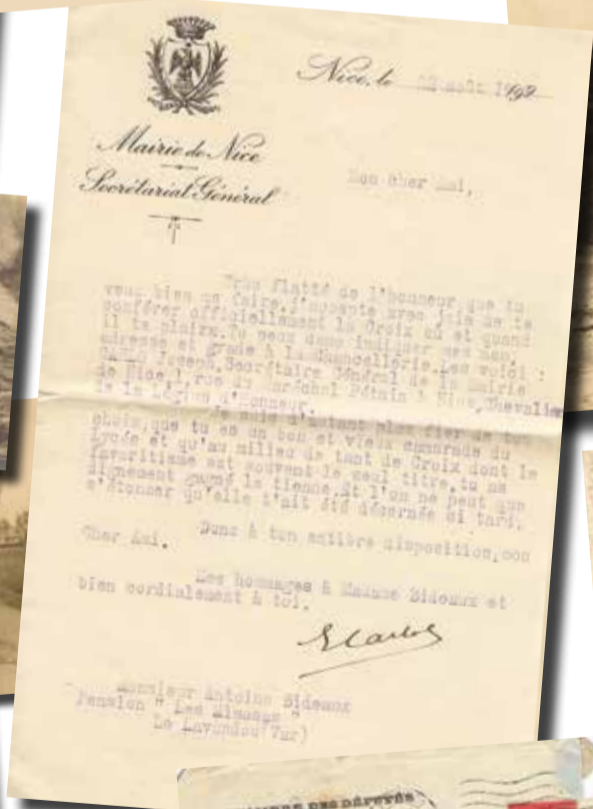 Nice, le 22 août 192
Mairie de Nice
Secrétariat Général
Mon cher Ami,
Très flatté de l'honneur que tu
veux bien me faire, j'accepte avec joie de te
conférer officiellement la Croix où et quand
il te plaira. Tu peux donc indiquer mes nom,
adresse et grade à la Chancellerie. Les voici :
Joseph, Secrétaire Général de la Mairie
de Nice 1, rue du Maréchal Pétain à Nice, Chevalier
de la Légion d'Honneur.
Je suis d'autant plus fier de ton
choix, que tu es un bon et vieux camarade du
Lycée et qu'au milieu de tant de Croix dont le
favoritisme est souvent le seul titre, tu as
dignement gagné la tienne. Et l'on ne peut que
s'étonner qu'elle t'ait été décernée si tard.
Donc à ton entière disposition, mon
Cher Ami.
Mes hommages à Madame Bideaux et
bien cordialement à toi.
Monsieur Antoine Bideaux
Pension " Les Mimosas "
Le Lavandou (Var)
DES DÉPUTÉS